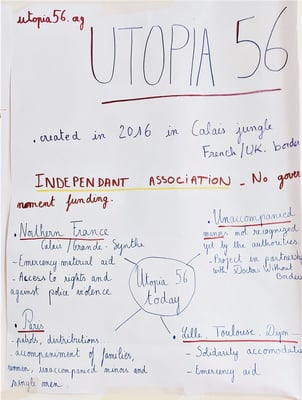 utopia56.org
UTOPIA 56
. created in 2016 in Calais jungle
French/UK. border
INDEPENDANT ASSOCIATION - No gover
nement funding.
. Northern France
Calais/Grande-Synthe
- Emergency material aid
- Access to rights and
against police violence.
. Unaccompanied
minors not recognized
yet by the authorities
- Project in partnership
with Doctors Without
Borders
Utopia 56
today
. Paris
- patrols, distributions...
accompaniment of families,
women, unaccompanied minors and
single men.
. Lille, Toulouse, Dijon...
- Solidarity accomodation
- Emergency aid